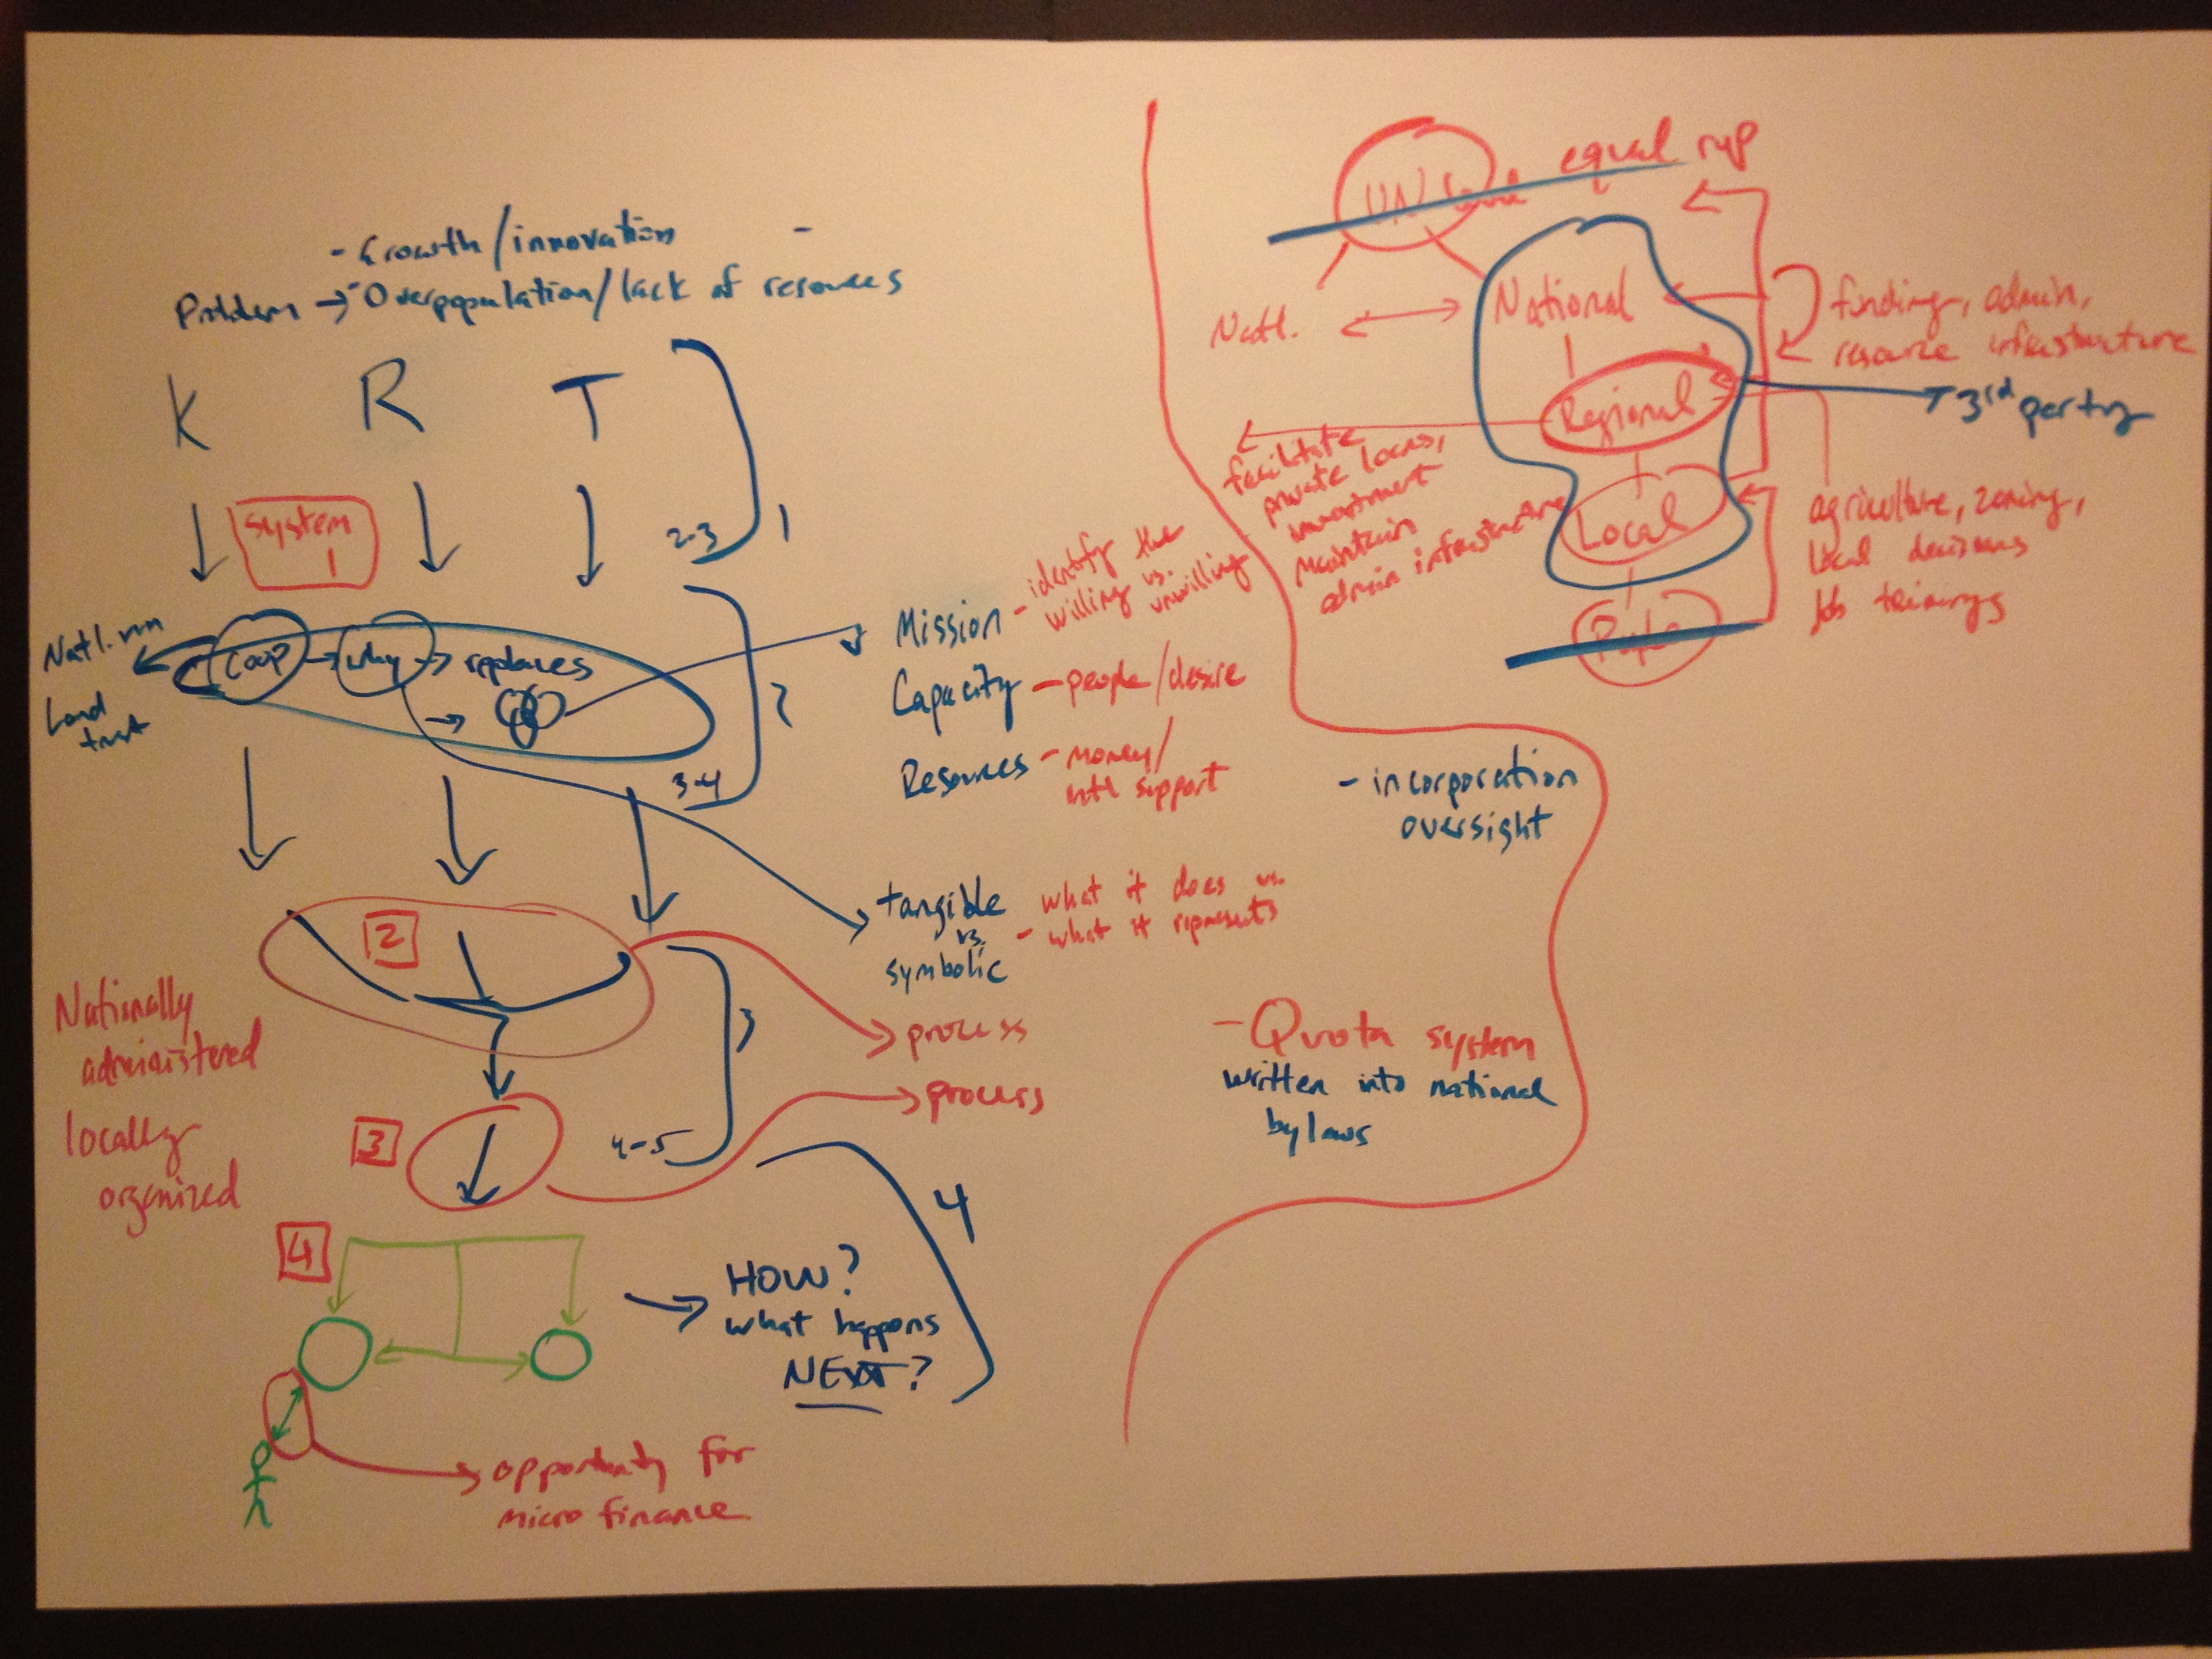 - Growth/innovation -
Problem → - Overpopulation/lack of resources
K R T
System
1
2-3
1
Natl. run
Land
trust
Coop → why → replaces
→
2
3-4
Mission - identify the
willing vs.
unwilling
Capacity - people/desire
Resources - money/
intl support
tangible - what it does vs.
vs. - what it represents
symbolic
2
3
process
process
Nationally
administered
locally
organized
3
4-5
4
4
HOW?
what happens
NEXT?
opportunity for
micro finance
UN equal rep
Natl. ↔ National
Regional
Local
funding, admin,
resource infrastructure
3rd party
facilitate
private loans,
investment
maintain
admin infrastructure
agriculture, zoning,
local decisions
job trainings
- incorporation
oversight
- Quota system
written into national
bylaws